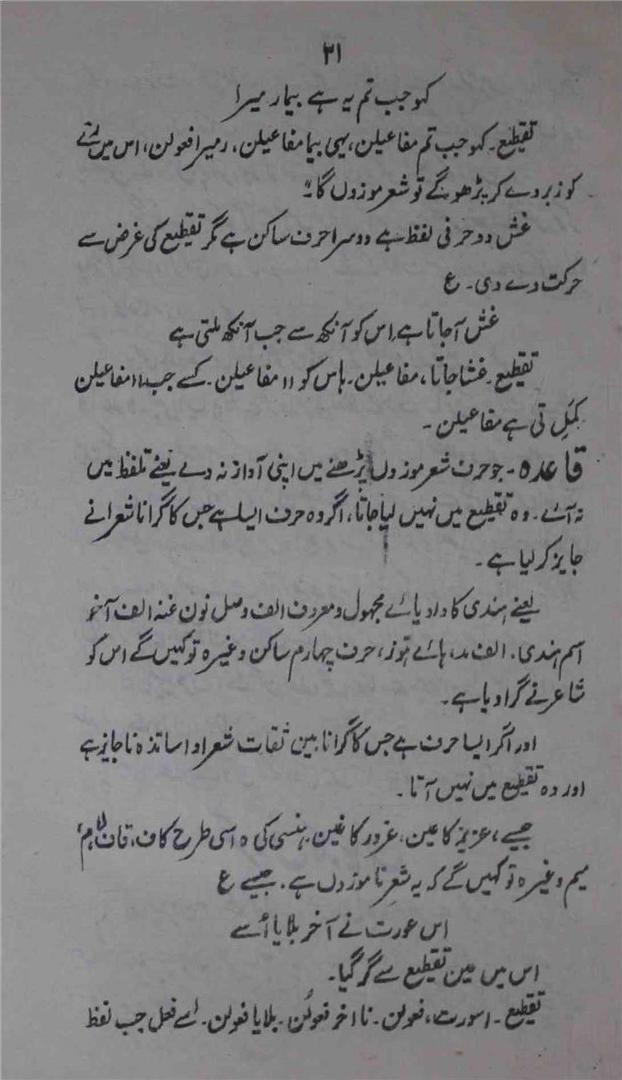 ۲۱
کہو جب تم یہ ہے بیمار میرا
تقطیع۔ کہو جب تم مفاعیلن، یہی بیما مفاعیلن، رمیرا فعولن، اس میں رئے
کو زبر دے کر پڑھو گے تو شعر موزوں ہوگا۔
غش دو حرفی لفظ ہے دوسرا حرف ساکن ہے مگر تقطیع کی غرض سے
حرکت دے دی۔ ع
غش آجاتا ہے اس کو آنکھ سے جب آنکھ ملتی ہے
تقطیع۔ غشاجاتا، مفاعیلن۔ ہاس کو اا مفاعیلن۔ کسے جب اا مفاعیلن
کمل تی ہے مفاعیلن۔
قاعدہ۔ جو حرف شعر موزوں پڑھنے میں اپنی آواز نہ دے یعنے تلفظ میں
نہ آئے۔ وہ تقطیع میں نہیں لیا جاتا، اگر وہ حرف ایسا ہے جس کا گرانا شعرا نے
جایز کر لیا ہے۔
یعنے ہندی کا واو یائے مجہول و معروف الف وصل نون غنہ الف آخر
اسم ہندی۔ الف مد، ہائے ہوز، حرف چہارم ساکن وغیرہ تو کہیں گے اس کو
شاعر نے گرا دیا ہے۔
اور اگر ایسا حرف ہے جس کا گرانا بین ثقات شعرا و اساتذہ ناجایز ہے
اور وہ تقطیع میں نہیں آتا۔
جیسے، عزیز کا عین، غرور کا غین، ہنسی کی ہ اسی طرح کاف، قاف لام
میم وغیرہ تو کہیں گے کہ یہ شعر ناموزوں ہے۔ جیسے ع
اس عورت نے آخر بلایا اُسے
اس میں عین تقطیع سے گر گیا۔
تقطیع۔ اسورت، فعولن۔ نا اخر فعولن۔ بلایا فعولن۔ اسے فعل جب لفظ